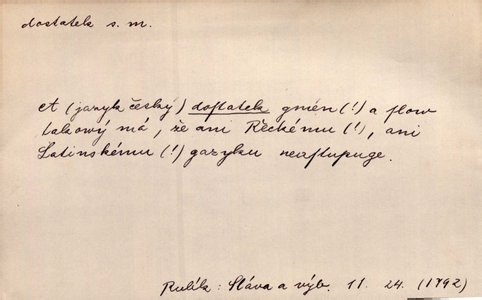 dostatek s. m.
A (jazyk český) doſtatek gmén (!) a ſlow
takowý má, že ani Řeckému (!), ani
Latinskému (!) gazyku neuſtupuge.
Rulík: Sláva a výb. 11. 24. (1792)